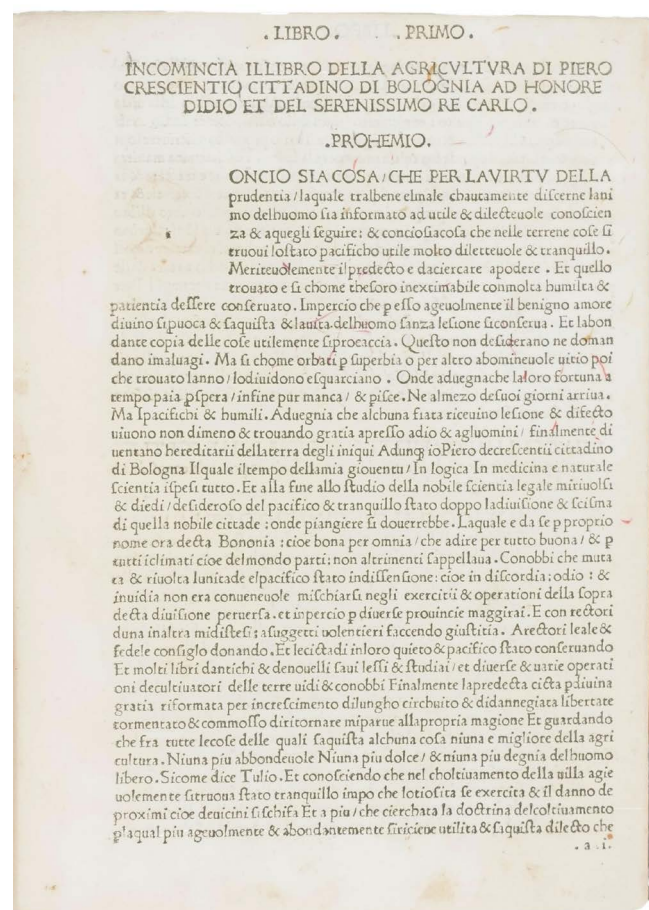 . LIBRO . . PRIMO .
INCOMINCIA ILLIBRO DELLA AGRICVLTVRA DI PIERO
CRESCIENTIO CITTADINO DI BOLOGNIA AD HONORE
DIDIO ET DEL SERENISSIMO RE CARLO .
.PROHEMIO.
ONCIO SIA COSA/CHE PER LAVIRTV DELLA
prudentia/laquale tralbene elmale chautamente discerne lani
mo delhuomo sia informato ad utile & dilecteuole conoscien
za & aquegli seguire: & conciosiacosa che nelle terrene cose si
truoui lostato pacificho utile molto diletteuole & tranquillo.
Meriteuolemente ilpredecto e daciercare apodere . Et quello
trouato e si chome thesoro inextimabile conmolta humilta &
patientia dessere conseruato. Impercio che p esso ageuolmente il benigno amore
diuino sipuoca & saquista &lauita.delhuomo sanza lesione siconserua. Et labon
dante copia delle cose utilemente siprocaccia. Questo non desiderano ne doman
dano imaluagi. Ma si chome orbati p superbia o per altro abomineuole uitio poi
che trouato lanno/lodiuidono esquarciano . Onde aduegnache laloro fortuna a
tempo paia pspera/infine pur manca/ & pisce. Ne almezo desuoi giorni arriua.
Ma Ipacifichi & humili. Aduegnia che alchuna fiata riceuino lesione & difecto
uiuono non dimeno & trouando gratia apresso adio & agluomini/ finalmente di
uentano hereditarii dellaterra degli iniqui Adunq ioPiero decrescentii cittadino
di Bologna Ilquale iltempo dellamia giouentu/In logica In medicina e naturale
scientia ispesi tutto. Et alla fune allo studio della nobile scientia legale miriuolsi
& diedi/desideroso del pacifico & tranquillo stato doppo ladiuisione & scisma
di quella nobile cittade : onde piangiere si douerrebbe. Laquale e da se p proprio
nome ora decta Bononia : cioe bona per omnia/che adire per tutto buona/ & p
tutti iclimati cioe delmondo parti: non altrimenti sappellaua. Conobbi che muta
ta & riuolta lunitade elpacifico stato indissensione: cioe in discordia: odio : &
inuidia non era conueneuole mischiarsi negli exercitii & operationi della sopra
decta diuisione peruersa. et inpercio p diuerse prouincie maggirai. E con rectori
duna inaltra midistesi; asuggetti uolentieri faccendo giustitia. Arectori leale &
fedele consiglo donando. Et lecictadi inloro quieto & pacifico stato conseruando
Et molti libri dantichi & denouelli saui lessi & studiai/et diuerse & uarie operati
oni decultiuatori delle terre uidi & conobbi Finalmente lapredecta cicta pdiuina
gratia riformata per increscimento dilungho circhuito & didannegiata libertate
tormentato & commosso diritornare miparue allapropria magione Et guardando
che fra tutte lecose delle quali saquista alchuna cosa niuna e migliore della agri
cultura. Niuna piu abbondeuole Niuna piu dolce/ & niuna piu degnia delhuomo
libero. Sicome dice Tulio. Et conosciendo che nel choltiuamento della uilla agie
uolemente sitruoua stato tranquillo impo che lotiosita se exercita & il danno de
proximi cioe deuicini sischifa Et a piu/che cierchata la doctrina delcoltiuamento
plaqual piu ageuolmente & abondantemente siriciene utilita & siquista dilecto che
. a .i.